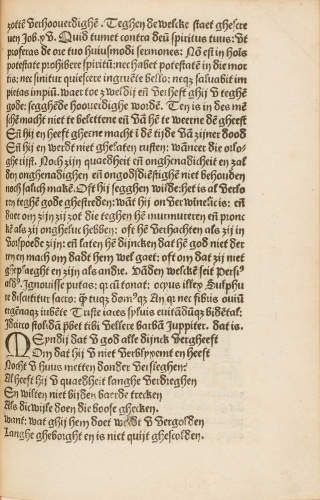 zotte verhoouerdighe. Teghen de welcke staet ghescre
uen Job. xv. Quid tumet contra deū spiritus tuus: vt
proferas de ore tuo huiusmodi sermones: Nō est in hoīs
potestate prohibere spiritū: nec habet potestatē in die mor
tis: nec sinitur quiescere ingruēte bello: neqȝ saluabit im
pietas impiū. waer toe ȝ weldij eñ verheft ghij v teghē
gode: segghēde hoouerdighe wordē. Ten is in des mē
schē macht niet te belettene eñ vā hē te weerne dē gheest
Eñ hij en heeft gheene macht ī dē tijde vā zijner dood
Eñ hij en werdt niet ghelaten rusten: wāneer die orlo-
ghe rijst. Noch zijn quaedheit eñ onghenadicheit en zal
den onghenadighen eñ ongodsdiēstighē niet behouden
noch salich makē. Oft hij segghen wilde: het is al verlo
ren teghē gode ghestreden: wāt hij onverwinelic is: eñ
daer om zijn zij zot die teghen hē murmureren eñ pronc
kē als zij ongheluc hebben: oft hē verhachten als zij in
vospoede zijn: eñ laten hē dijncken dat hē god niet der
ren en mach om dadt hem wel gaet: oft om dat zij niet
gheplaeght en zijn als andre. Vādēn welckē seit Persiꝰ
aldꝰ. Ignouisse putas: qꝛ cū tonat: ocyus illex Sulphu
re discutitur sacro: q̄ tuqȝ domꝰqȝ An qꝛ nec fibris ouiū
ergēnaqȝ iubēte Triste iaces lucis euitādūqȝ bidētal:
Idcirco stolidā p̄bet tibi vellere barbā Juppiter. dat is.
MEyndij dat v god alle dijnck vergheeft
Om dat hij v niet verblyxemt en heeft
Nocht v huus metten donder verfleghen?
Al heeft hij v quaedheit langhe verdreghen
Sy wilten niet bijden baerde trecken
Als die wijse doen die boose ghecken.
want: wat ghij hem doet werdt v vergolden
Langhe gheborght en is niet quijt ghescholden.